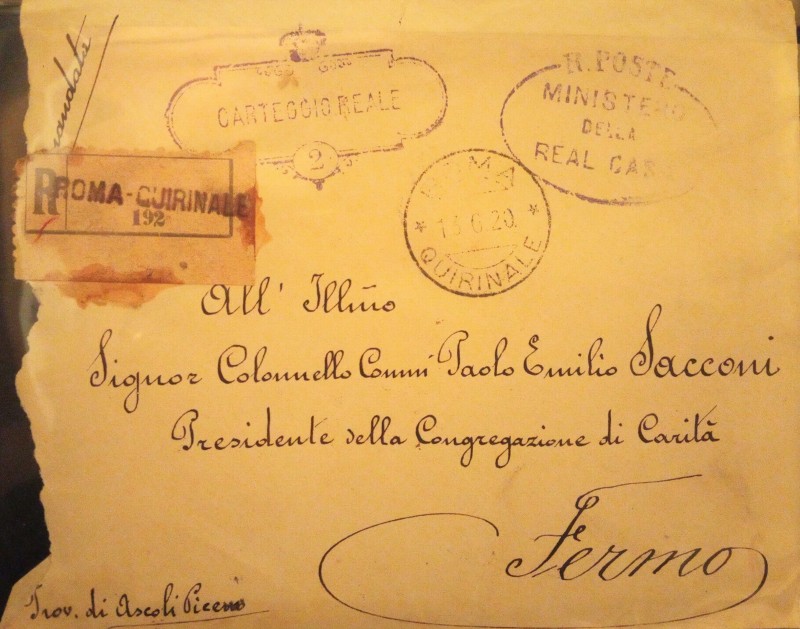 CARTEGGIO REALE
2
R. POSTE
MINISTERO
DELLA
REAL CAS
R ROMA-QUIRINALE
192
ROMA
13.6.20.
QUIRINALE
All' Illmo
Signor Colonnello Comm Paolo Emilio Sacconi
Presidente della Congregazione di Carità
Fermo
Prov. di Ascoli Piceno